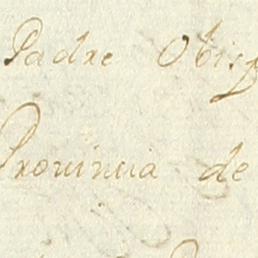 Padre Obisp
Provincia de